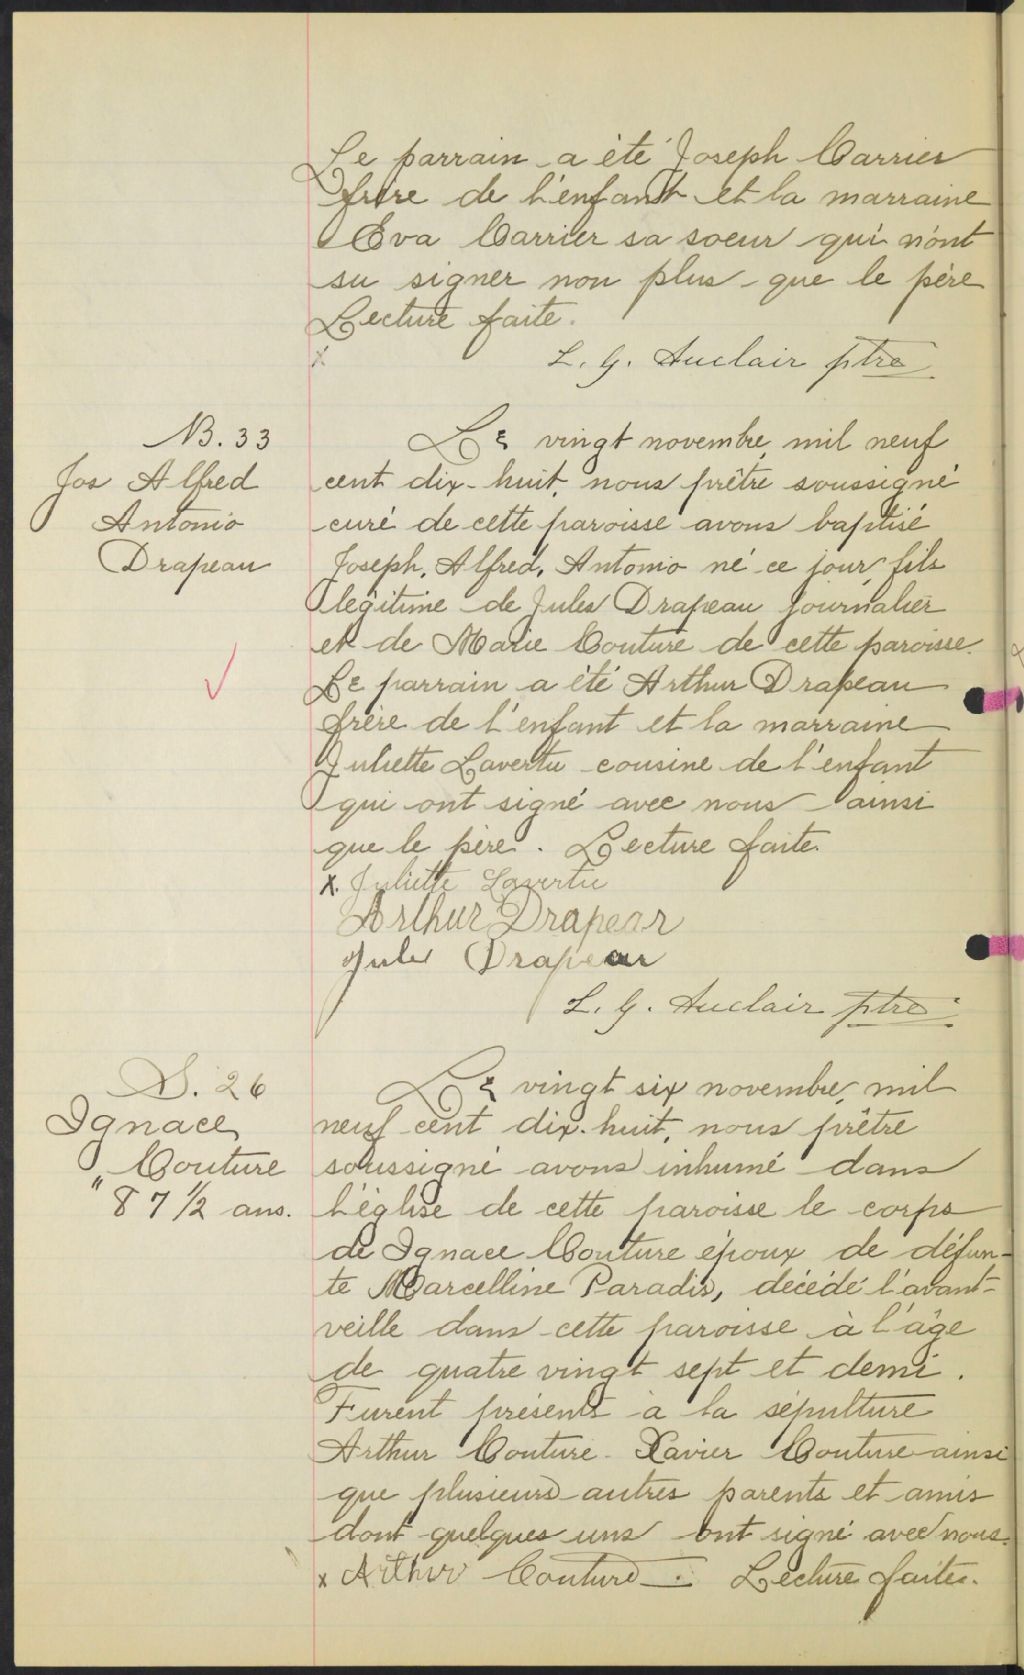 Le parrain a été Joseph Carrier
frère de l'enfant et la marraine
Eva Carrier sa soeur qui n'ont
su signer non plus que le père
Lecture faite.
x L. G. Auclair ptre
B. 33
Jos Alfred
Antonio
Drapeau
Le vingt novembre, mil neuf
cent dix-huit, nous prêtre soussigné
curé de cette paroisse avons baptisé
Joseph, Alfred, Antonio né ce jour, fils
légitime de Jules Drapeau journalier
et de Marie Couture de cette paroisse.
Le parrain a été Arthur Drapeau
frère de l'enfant et la marraine
Juliette Lavertu cousine de l'enfant
qui ont signé avec nous ainsi
que le père. Lecture faite.
x. Juliette Lavertu
Arthur Drapeau
Jules Drapeau
L. G. Auclair ptre
S. 26
Ignace
Couture
87 1/2 ans.
Le vingt six novembre, mil
neuf cent dix-huit, nous prêtre
soussigné avons inhumé dans
l'église de cette paroisse le corps
de Ignace Couture époux de défun-
te Marcelline Paradis, décédé l'avant-
veille dans cette paroisse à l'âge
de quatre vingt sept et demi.
Furent présents à la sépulture
Arthur Couture - Xavier Couture ainsi
que plusieurs autres parents et amis
dont quelques uns ont signé avec nous.
x Arthur Couture. Lecture faite.